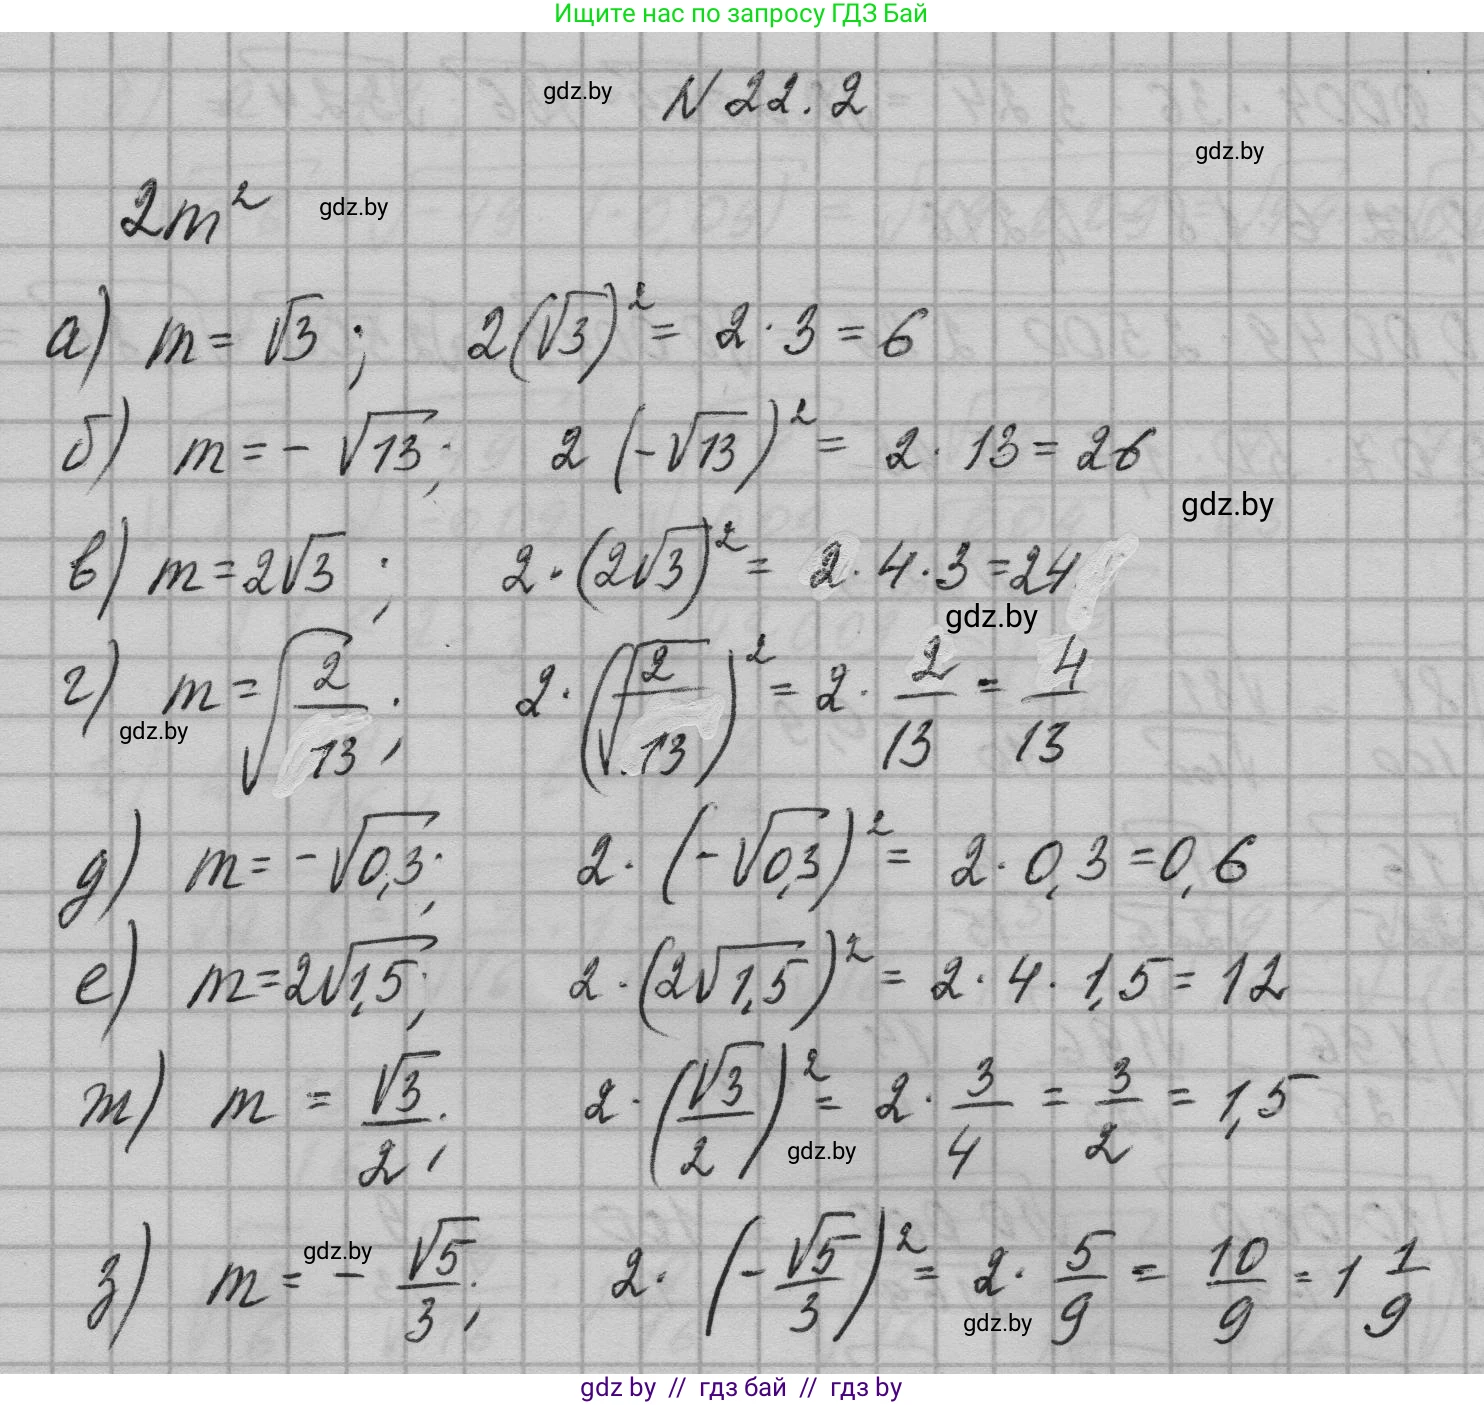 Ищите нас по запросу ГДЗ Бай
gdz.by N 22.2
gdz.by
2m² gdz.by
а) m = √3 ; 2(√3)² = 2 · 3 = 6
б) m = - √13 ; 2 (-√13)² = 2 · 13 = 26
gdz.by
в) m = 2√3 ; 2 · (2√3)² = 2 · 4 · 3 = 24
gdz.by
г) m = √(2/13) ; 2 · (√(2/13))² = 2 · 2/13 = 4/13
gdz.by
д) m = -√0,3 ; 2 · (-√0,3)² = 2 · 0,3 = 0,6
е) m = 2√1,5 ; 2 · (2√1,5)² = 2 · 4 · 1,5 = 12
ж) m = √3/2 ; 2 · (√3/2)² = 2 · 3/4 = 3/2 = 1,5
gdz.by
з) m = - √5/3 ; 2 · (-√5/3)² = 2 · 5/9 = 10/9 = 1 1/9
gdz.by
gdz.by
gdz by // гдз бай // гдз by